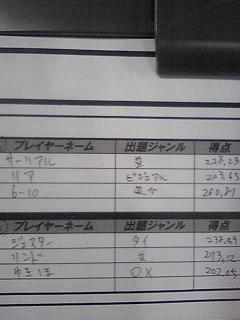 プレイヤーネーム 出題ジャンル 得点
サーリアル 並 228.23
リア ビジュアル 203.65
6-10
プレイヤーネーム 出題ジャンル 得点
ジェスター タイ
リンド 273.12
ゆきいち ○× 202.05